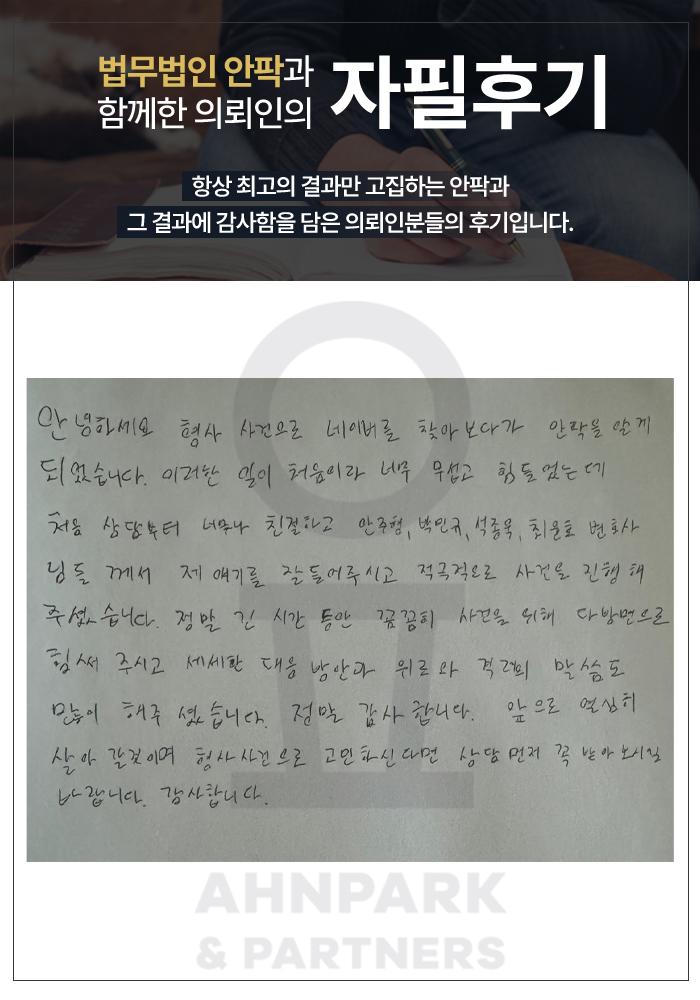 법무법인 안팍과
함께한 의뢰인의
자필후기
항상 최고의 결과만 고집하는 안팍과
그 결과에 감사함을 담은 의뢰인분들의 후기입니다.
안녕하세요 형사 사건으로 네이버를 찾아보다가 안팍을 알게
되었습니다. 이러한 일이 처음이라 너무 무섭고 힘들었는데
처음 상담부터 너무나 친절하고 안주형, 박민규, 석종욱, 최윤호 변호사
님들 께서 제 얘기를 잘 들어주시고 적극적으로 사건을 진행해
주셨습니다. 정말 긴 시간 동안 꼼꼼히 사건을 위해 다방면으로
힘써 주시고 세세한 대응 방안과 위로와 격려의 말씀도
많이 해주셨습니다. 정말 감사합니다. 앞으로 열심히
살아 갈것이며 형사사건으로 고민하신다면 상담 먼저 꼭 받아보시길
바랍니다. 감사합니다.
AHNPARK
& PARTNERS